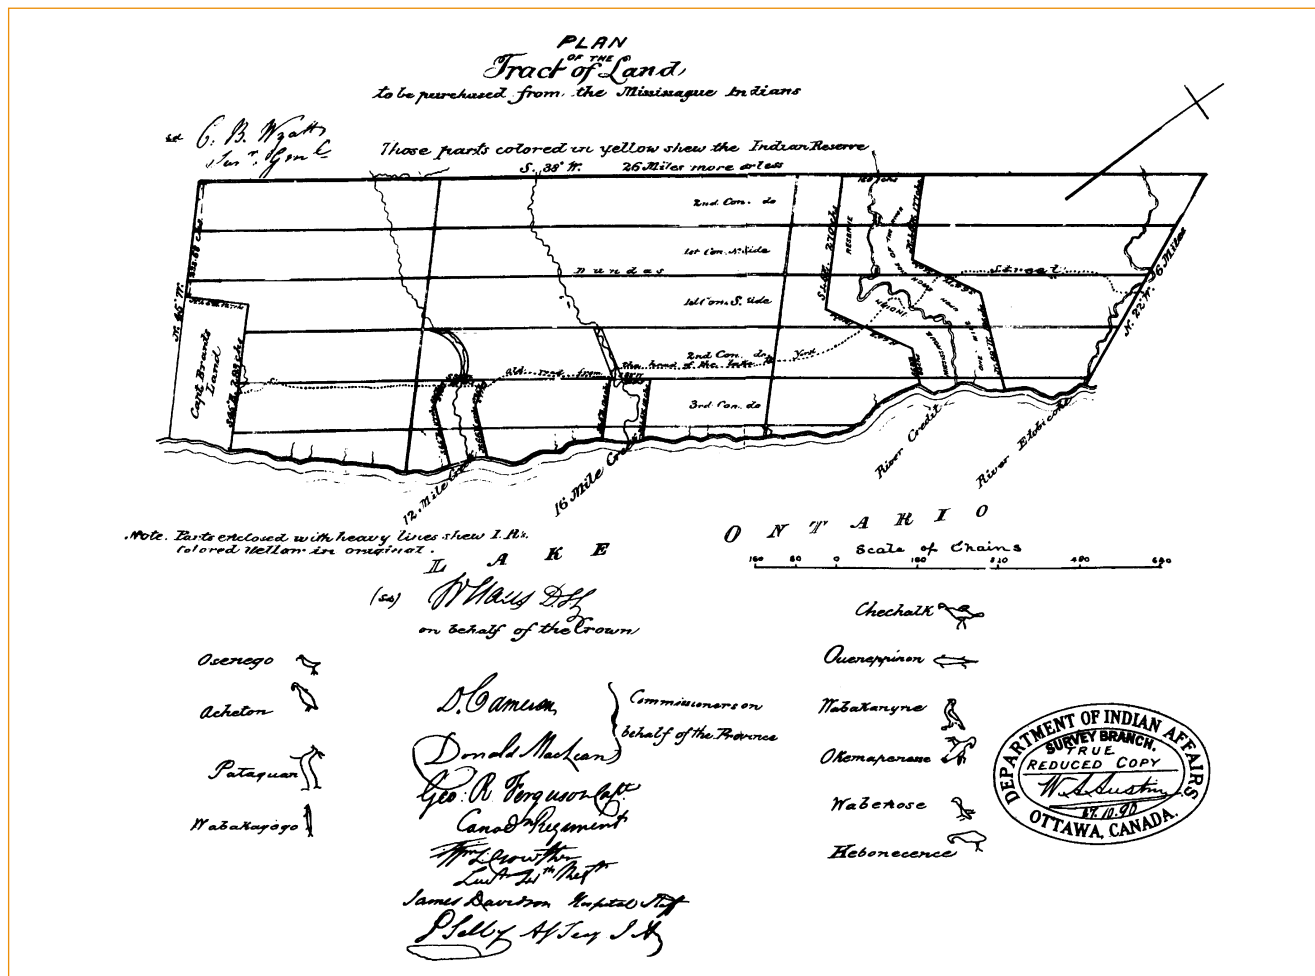 PLAN
OF THE
Tract of Land,
to be purchased from the Mississague Indians
sd C. B. Wyatt
Surr. Genl.
Those parts colored in yellow shew the Indian Reserve
S. 38° W. 26 Miles more or less
2nd Con. do
1st Con. N. Side
Dundas Street
1st Con. S. Side
2nd Con. do
3rd Con. do
old road from the head of the lake to York
N. 45° W.
Capt Brants
Land
S. 45° E. 270 chs
RESERVE
INDIAN
ONE MILE
6 Miles
N. 22° W.
12. Mile Creek
16 Mile Creek
River Credit
River Etobicoke
LAKE ONTARIO
Note. Parts enclosed with heavy lines shew I. R's.
Colored Yellow in original.
Scale of Chains
160 80 0 160 480
(sd) W Claus D.S.G.
on behalf of the Crown
Osenego
Acheton
Pataquan
Wabakagogo
D. Cameron
Donald Maclean
Commissioners on
behalf of the Province
Geo: R Ferguson Capt
Canadn Regiment
Wm L Crowther
Lieut 41th Regt
James Davidson Hospital Staff
P Selby
Chechalk
Queneppinon
Wabakanyne
Okemapenesse
Wabenose
Kebonecence
DEPARTMENT OF INDIAN AFFAIRS
SURVEY BRANCH.
TRUE
REDUCED COPY
W. A. Austin
OTTAWA, CANADA.